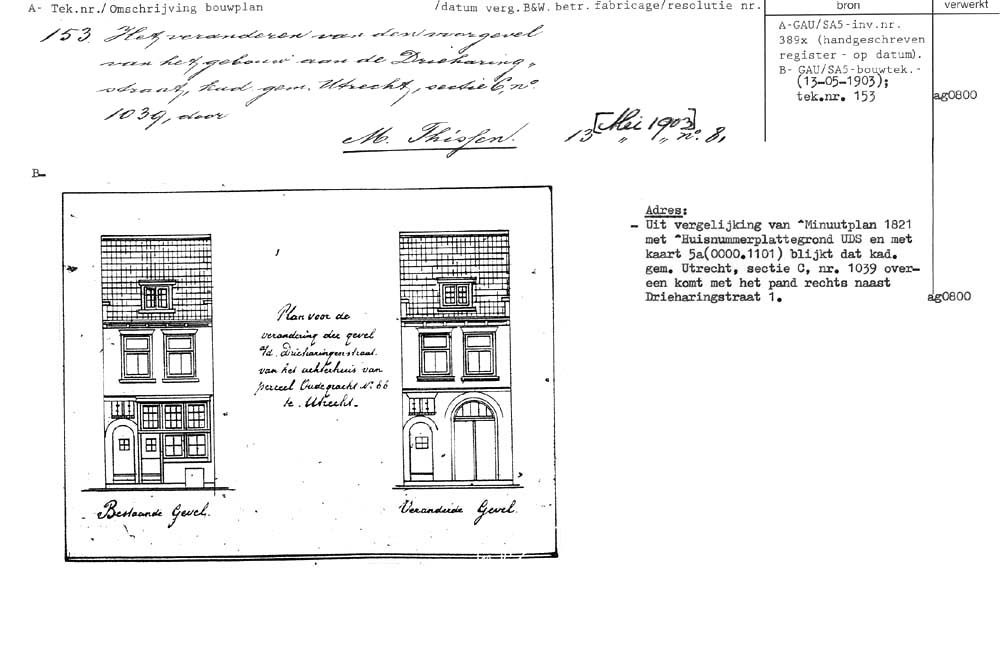 A- Tek.nr./Omschrijving bouwplan /datum verg.B&W.betr.fabricage/resolutie nr. bron verwerkt
153. Het veranderen van den voorgevel
van het gebouw aan de Drieharing-
straat, kad. gem. Utrecht, sectie C, no.
1039, door
M. Thissen.
13 [Mei 1903] „ „ no. 8,
A-GAU/SA5-inv.nr.
389x (handgeschreven
register - op datum).
B- GAU/SA5-bouwtek.-
(13-05-1903);
tek.nr. 153
ag0800
B-
1
Plan voor de
verandering der gevel
a/d. Drieharingenstraat.
van het achterhuis van
perceel Oudegracht No. 66
te. Utrecht.
Bestaande Gevel.
Veranderde Gevel.
Adres:
- Uit vergelijking van ^Minuutplan 1821
met ^Huisnummerplattegrond UDS en met
kaart 5a(0000.1101) blijkt dat kad.
gem. Utrecht, sectie C, nr. 1039 over-
een komt met het pand rechts naast
Drieharingstraat 1.
ag0800